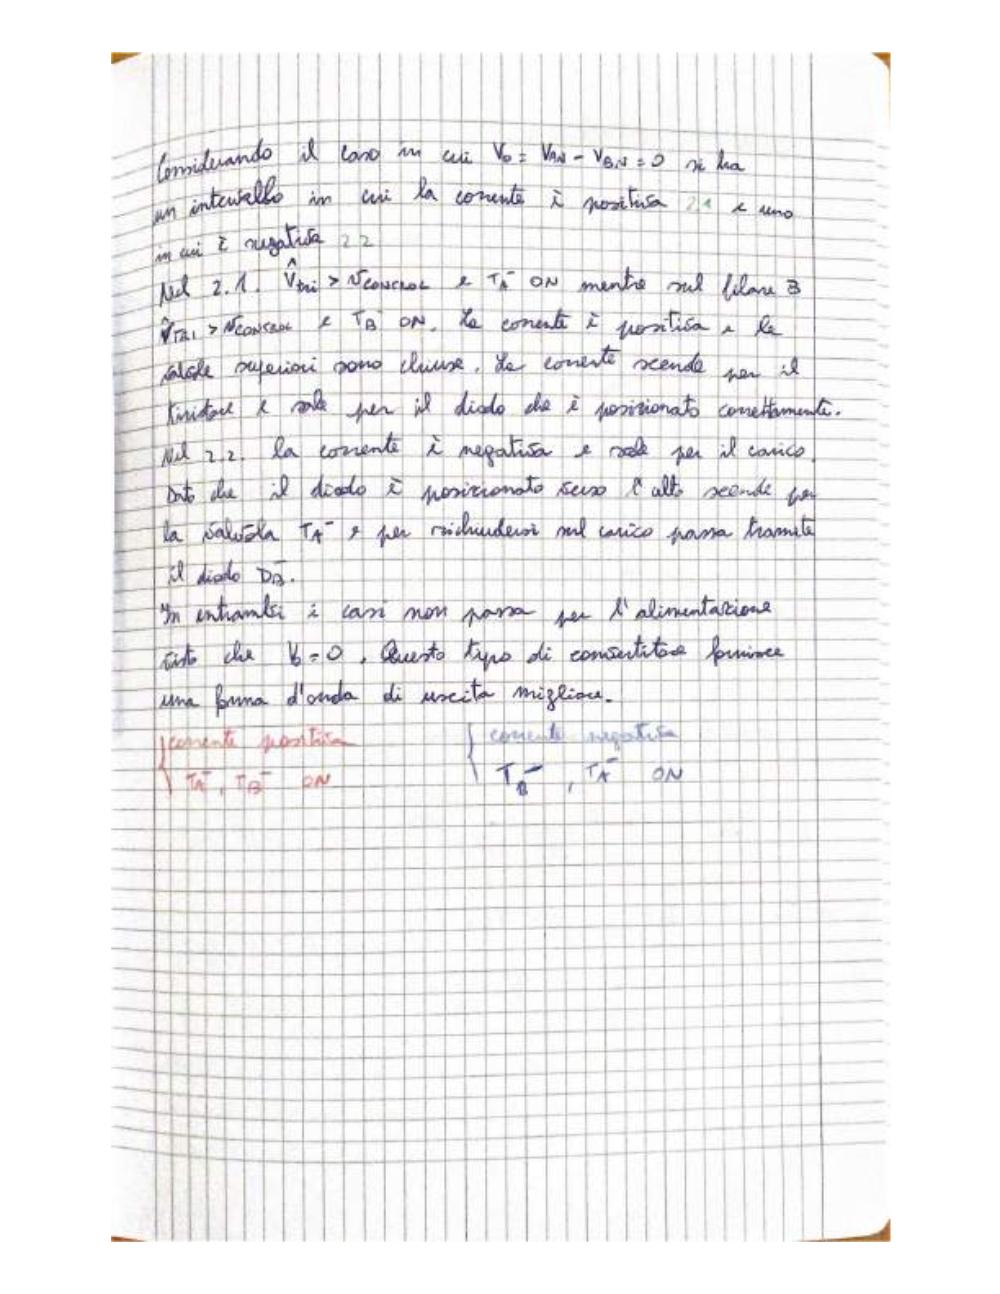 Considerando il caso in cui Vo = VAN - VBN = 0 si ha
un intervallo in cui la corrente è positiva 2.1 e uno
in cui è negativa 2.2
Nel 2.1. V̂tri > vCONTROL e TA⁻ ON mentre sul filare B
V̂TRI > vCONTROL e TB⁻ ON. La corrente è positiva e le
valvole superiori sono chiuse. La corrente scende per il
tiristore e sale per il diodo che è posizionato correttamente.
Nel 2.2. la corrente è negativa e sale per il carico.
Dato che il diodo è posizionato verso l'alto scende per
la valvola TA⁻ e per richiudersi sul carico passa tramite
il diodo DB⁻.
In entrambi i casi non passa per l'alimentazione
visto che Vo = 0. Questo tipo di convertitore fornisce
una forma d'onda di uscita migliore.
{ corrente positiva
TA⁻, TB⁻ ON
{ corrente negativa
TB⁻, TA⁻ ON